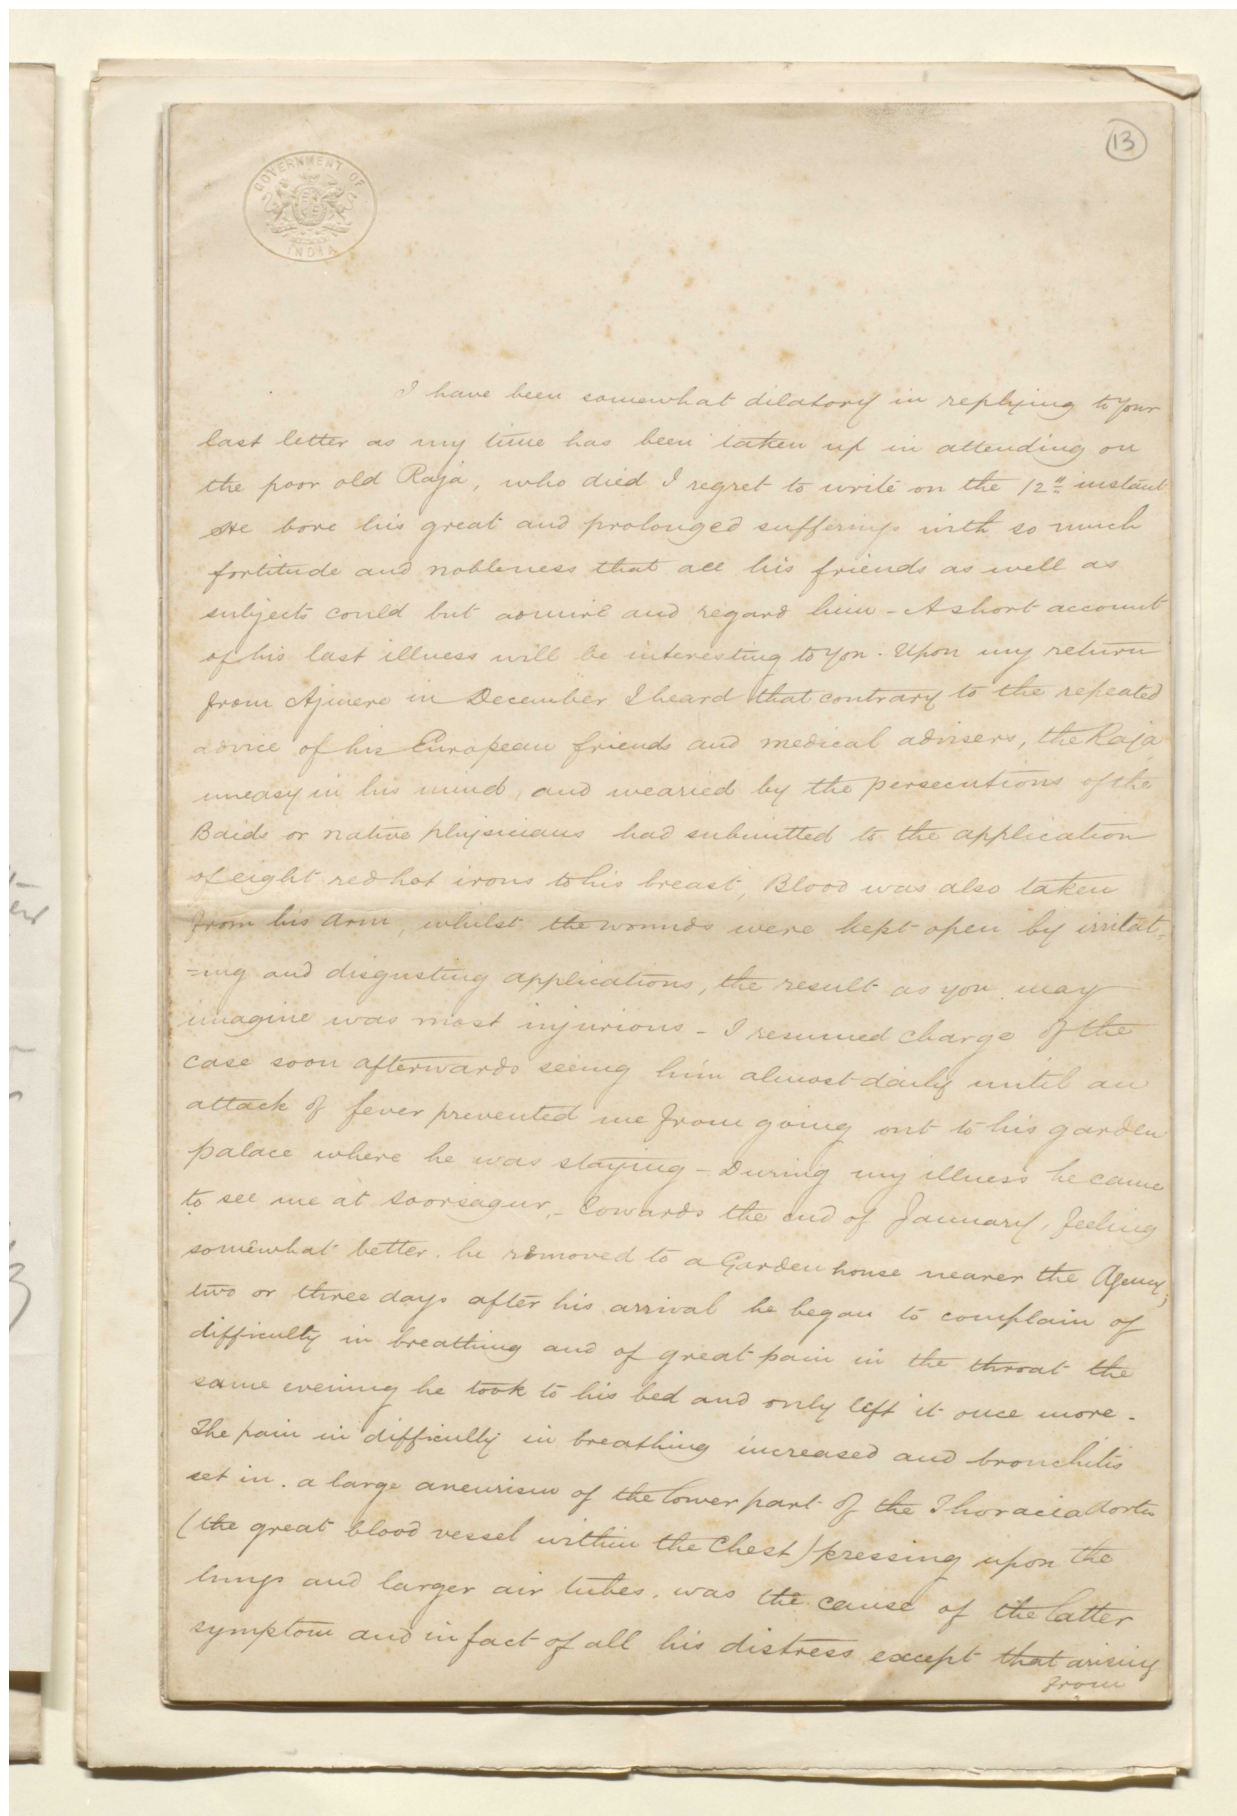 13
GOVERNMENT OF INDIA
I have been somewhat dilatory in replying to your
last letter as my time has been taken up in attending on
the poor old Raja, who died I regret to write on the 12th instant
He bore his great and prolonged sufferings with so much
fortitude and nobleness that all his friends as well as
subjects could but admire and regard him - A short account
of his last illness will be interesting to you. Upon my return
from Ajmere in December I heard that contrary to the repeated
advice of his European friends and medical advisers, the Raja
uneasy in his mind, and wearied by the persecutions of the
Baids or native physicians had submitted to the application
of eight red hot irons to his breast, Blood was also taken
from his arm, whilst the wounds were kept open by irritat-
=ing and disgusting applications, the result as you may
imagine was most injurious - I resumed charge of the
case soon afterwards seeing him almost daily until an
attack of fever prevented me from going out to his garden
palace where he was staying - During my illness he came
to see me at Soorsagur. - Towards the end of January, feeling
somewhat better. he removed to a Garden house nearer the Agency;
two or three days after his arrival he began to complain of
difficulty in breathing and of great pain in the throat the
same evening he took to his bed and only left it once more -
The pain in difficulty in breathing increased and bronchitis
set in. a large aneurism of the lower part of the Thoracic Aorta
(the great blood vessel within the Chest) pressing upon the
lungs and larger air tubes. was the cause of the latter
symptom and in fact of all his distress except that arising
from